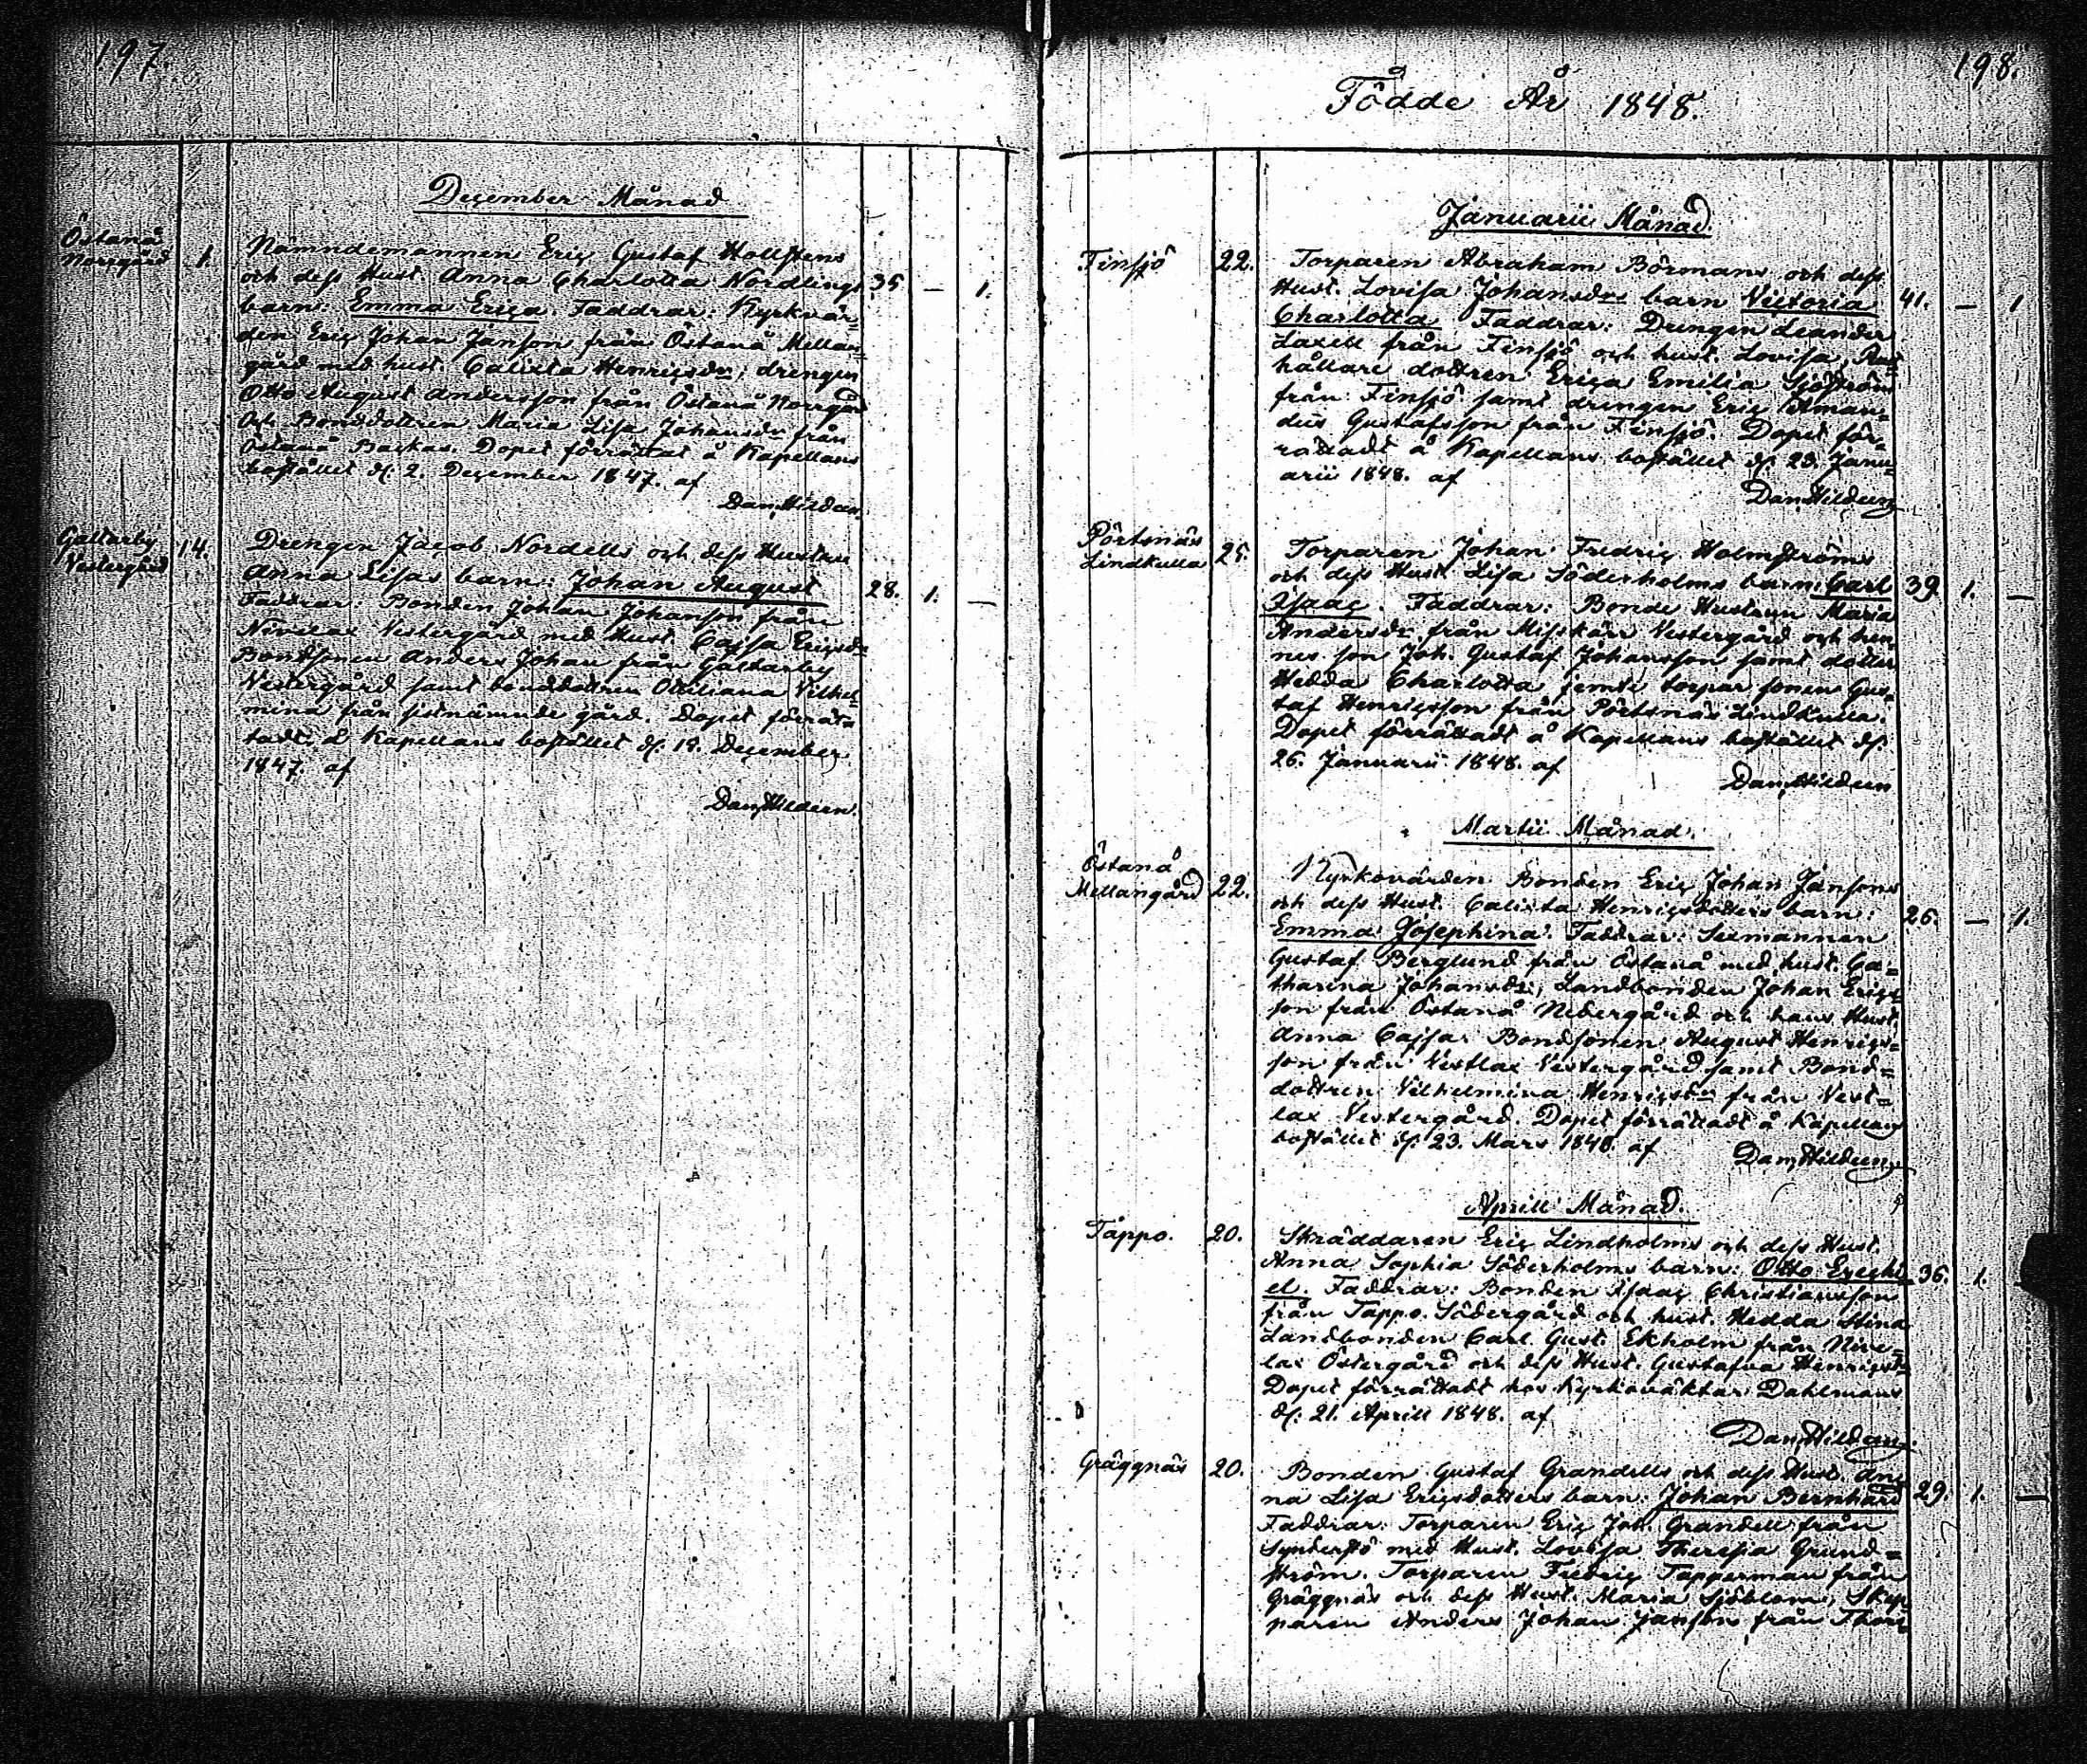 197.
December Månad
Östanå
Norrgård
1.
Nämndemannen Eric Gustaf Hollstens
och dess Hust. Anna Charlotta Nordlings
35 — 1.
barn: Emma Erica. Faddrar: Kyrkvär=
den Eric Johan Janson från Östanå Mellan=
gård med hust. Calixta Henricsdr; drengen
Otto August Andersson från Östanå Norrgård
och Bonddottren Maria Lisa Johansdr från
Östanå Backas. Dopet förrättat å Kapellans
bostället d: 2. December 1847. af
Dan. Hildeen.
Galtarby
Vestergård
14.
Drengen Jacob Nordells och dess Hustru
Anna Lisas barn: Johan August
28. 1. —
Faddrar: Bonden Johan Johanson från
Nivelax Vestergård med Hust. Cajsa Ericsdr
Bondsonen Anders Johan från Galtarby
Vestergård samt bonddottren Ottiliana Vilhel=
mina från sistnämnde gård. Dopet förrät=
tadt å Kapellans bostället d: December
1847. af
Dan. Hildeen.
198.
Födde År 1848.
Januarii Månad.
Finsjö
22.
Torparen Abraham Börmans och dess
Hust. Lovisa Johansdrs barn Victoria
41. — 1
Charlotta Faddrar: Drengen Leander
Laxell från Finsjö och hust. Lovisa, Rust=
hållare dottren Erica Emilia Sjöström
från Finsjö samt drengen Eric Aman=
dus Gustafsson från Finsjö. Dopet för=
rättadt å Kapellans bostället d: 23. Janu=
arii 1848. af
Dan. Hildeen
Pörtsnäs
Lindkulla
25.
Torparen Johan Fredric Holmströms
och dess Hust. Lisa Söderholms barn: Carl
39. 1. —
Isaac. Faddrar: Bonde Hustrun Maria
Andersdr från Misskärr Vestergård och hen
nes son Joh. Gustaf Johansson samt dotter
Hedda Charlotta jemte torpar sonen Gus=
taf Henricsson från Pörtsnäs Lindkulla.
Dopet förrättadt å Kapellans bostället d:
26. Januarii 1848. af
Dan. Hildeen
Martii Månad.
Östanå
Mellangård
22.
Kyrkovärden Bonden Eric Johan Jansons
och dess Hust. Calixta Henricsdotters barn:
26. — 1.
Emma Josephina. Faddrar: Sexmannen
Gustaf Berglund från Östanå med hust. Ca=
tharina Johansdr; Landbonden Johan Erics=
son från Östanå Nedergård och hans Hust.
Anna Cajsa. Bondsonen August Henrics=
son från Vestlax Vestergård samt Bond=
dottren Vilhelmina Henricsdr från Vest=
lax Vestergård. Dopet förrättadt å Kapellans
bostället d: 23. Mars 1848. af
Dan. Hildeen
Aprill Månad.
Tappo.
20.
Skräddaren Eric Lindholms och dess Hust.
Anna Sophia Söderholms barn: Otto Ezechi
36. 1.
el. Faddrar: Bonden Isaac Christiansson
från Tappo Södergård och hust. Hedda Stina
Landbonden Carl Gust. Ekholm från Nive=
lax Östergård och dess Hust. Gustafva Henricsdr
Dopet förrättadt hos Kyrkoväktar Dahlmans
d: 21. Aprill 1848. af
Dan. Hildeen
Gräggnäs
20.
Bonden Gustaf Grandells och dess Hust. An=
na Lisa Ericsdotters barn: Johan Bernhard
29. 1. —
Faddrar: Torparen Eric Joh. Grandell från
med Hust. Lovisa Theresia Grund=
ström. Torparen Fredric Tapperman från
Gräggnäs och dess Hust. Maria Sjöblom, Skep
paren Anders Johan Janson från